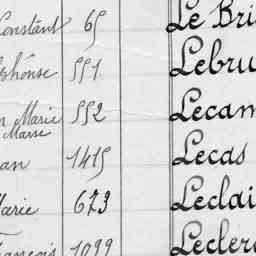 Constant 65 Le Bri
phonse 551 Lebru
n Marie 552 Lecam
Marie
an 1415 Lecas
Marie 673 Leclai
François 1099 Lecler